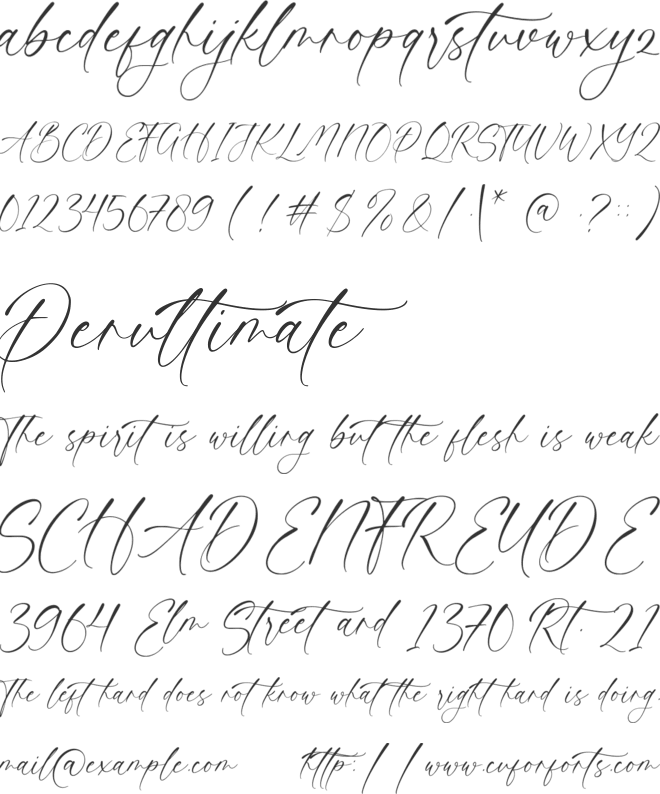 abcdefghijklmnopqrstuvwxyz
ABCDEFGHIJKLMNOPQRSTUVWXYZ
0123456789 ( ! # $ % & / . \ * @ . ? : : )
Penultimate
The spirit is willing but the flesh is weak
SCHADENFREUDE
3964 Elm Street and 1370 Rt. 21
The left hand does not know what the right hand is doing.
mail@example.com http://www.cuforforts.com